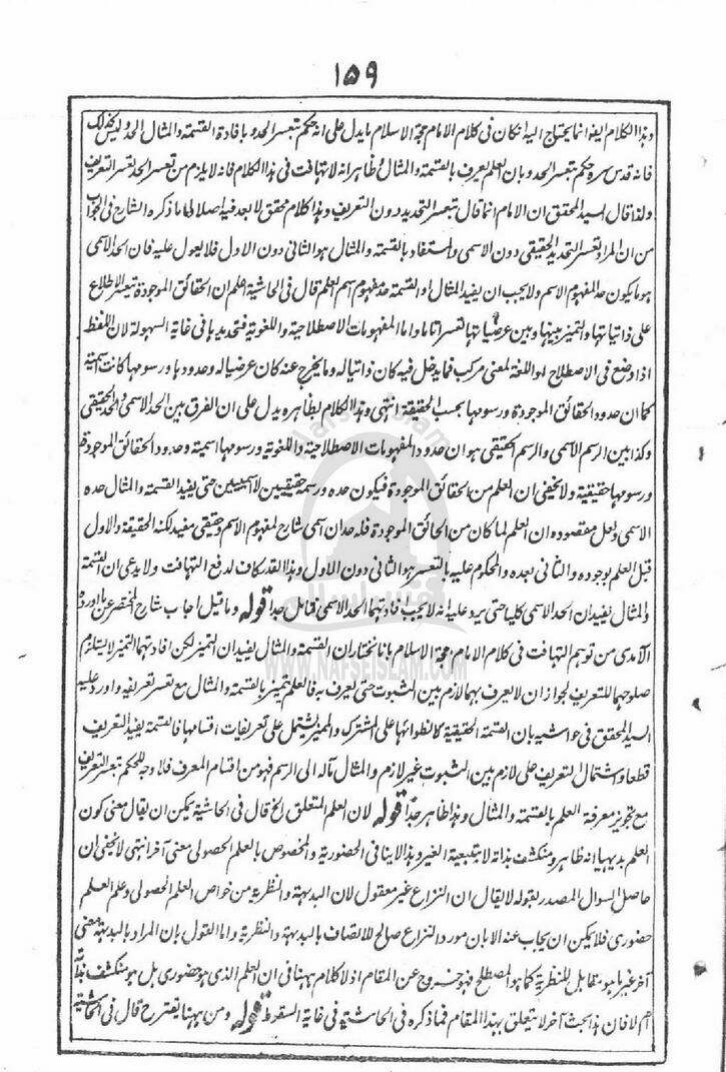 ١٥٩
وہذا الکلام ایضا انما یحتاج الیہ انکان فی کلام الامام حجۃ الاسلام ما یدل علی انہ حکم بتعسر الحد و بافادۃ القسمۃ والمثال الحد ولیس کذلک
فانہ قدس سرہ حکم بتعسر الحد وبان العلم یعرف بالقسمۃ والمثال وظاہر انہ لا تہافت فی ہذا الکلام فانہ لا یلزم من تعسر الحد تعسر التعریف
ولذا قال السید المحقق ان الامام انما قال بتعسر التحدید دون التعریف وہذا کلام محقق لا بعد فیہ اصلا لما ذکرہ الشارح فی الجواب
من ان المراد تعسر التحدید الحقیقی دون الاسمی والمستفاد بالقسمۃ والمثال ہو الثانی دون الاول فلا یعول علیہ فان الحد الاسمی
ہو ما یکون حد المفہوم الاسم ولا یجب ان یفید المثال او القسمۃ حد مفہوم اسم العلم قال فی الحاشیۃ اعلم ان الحقائق الموجودۃ یتعسر الاطلاع
علی ذاتیاتہا والتمیز بینہا وبین عرضیاتہا تعسرا تاما واما المفہومات الاصطلاحیۃ واللغویۃ فتحدیدہا فی غایۃ السہولۃ لان اللفظ
اذا وضع فی الاصطلاح او اللغۃ لمعنی مرکب فما یدخل فیہ کان ذاتیا لہ وما یخرج عنہ کان عرضیا لہ وحدودہا ورسومہا کانت اسمیۃ
کما ان حدود الحقائق الموجودۃ ورسومہا بحسب الحقیقۃ انتہی وہذا الکلام بظاہرہ یدل علی ان الفرق بین الحد الاسمی والحد الحقیقی
وکذا بین الرسم الاسمی والرسم الحقیقی ہو ان حدود المفہومات الاصطلاحیۃ واللغویۃ ورسومہا اسمیۃ وحدود الحقائق الموجودۃ
ورسومہا حقیقیۃ ولا یخفی ان العلم من الحقائق الموجودۃ فیکون حدہ ورسمہ حقیقیین لا اسمیین حتی یفید القسمۃ والمثال حدہ
الاسمی ولعل مقصودہ ان العلم لما کان من الحقائق الموجودۃ فلہ حدان اسمی شارح لمفہوم الاسم وحقیقی مفید لکنہ الحقیقۃ والاول
قبل العلم بوجودہ والثانی بعدہ والمحکوم علیہ بالتعسر ہو الثانی دون الاول وہذا القدر کاف لدفع التہافت ولا یدعی ان القسمۃ
والمثال یفیدان الحد الاسمی کلیا حتی یرد علیہ انہ لا یجب افادتہما الحد الاسمی فتامل جدا قولہ وما قیل اجاب شارح المختصر عن ما اوردہ
الآمدی من توہم التہافت فی کلام الامام حجۃ الاسلام بانا نختار ان القسمۃ والمثال یفیدان التمیز لکن افادتہما التمیز لا یستلزم
صلوحہما للتعریف لجواز ان لا یعرف بہما لازم بین الثبوت حتی یعرف بہ فالعلم تمیز بالقسمۃ والمثال مع تعسر تعریفہ واورد علیہ
السید المحقق فی حواشیہ بان القسمۃ الحقیقیۃ کانطوائہا علی المشترک والممیز یشتمل علی تعریفات اقسامہا فالقسمۃ یفید التعریف
قطعا واشتمال التعریف علی لازم بین الثبوت غیر لازم والمثال مآلہ الی الرسم فہو من اقسام المعرف فلا وجہ للحکم بتعسر التعریف
مع تجویز معرفۃ العلم بالقسمۃ والمثال وہذا ظاہر جدا قولہ لان العلم المتعلق الخ قال فی الحاشیۃ یمکن ان یقال معنی کون
العلم بدیہیا انہ ظاہر ومنکشف بذاتہ لا بتبعیۃ الغیر وہذا لا ینافی الحضوریۃ والمخصوص بالعلم الحصولی معنی آخر انتہی لا یخفی ان
حاصل السوال المصدر بقولہ لا یقال ان النزاع غیر معقول لان البدیہۃ والنظریۃ من خواص العلم الحصولی وعلم العلم
حضوری فلا یمکن ان یجاب عنہ الا بان مورد النزاع صالح للاتصاف بالبدیہۃ والنظریۃ واما القول بان المراد بالبدیہۃ معنی
آخر غیر ما ہو مقابل للنظریۃ کما ہو المصطلح فہو خروج عن المقام اذ لا کلام ہہنا فی ان العلم الذی ہو حضوری بل ہو منکشف بذاتہ
ام لا فان ہذا بحث آخر لا یتعلق بہذا المقام فما ذکرہ فی الحاشیۃ فی غایۃ السقوط قولہ ومن ہہنا یقترح قال فی الحاشیۃ
WWW.NAFSEISLAM.COM